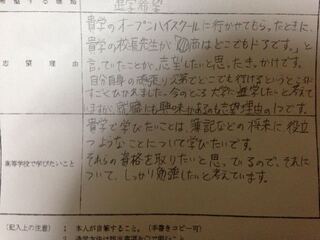 進学希望
志望理由
貴学のオープンハイスクールに行かせてもらったときに、
貴学の校長先生が「 面はどこでもドアです。」と
言っていたことが、志望したいと思ったきっかけです。
自分自身の頑張り次第でどこでも行けるというところが
すごくひかれました。今のところ大学に進学したいと考えて
いますが、就職にも興味があるのも志望理由の1つです。
高等学校で学びたいこと
貴学で学びたいことは、簿記などの将来に役立
つようなことについて学びたいです。
それらの資格を取りたいと思っているので、それに
ついて、しっかり勉強したいと考えています。
(記入上の注意) 1 本人が自筆すること。(手書きコピー可)